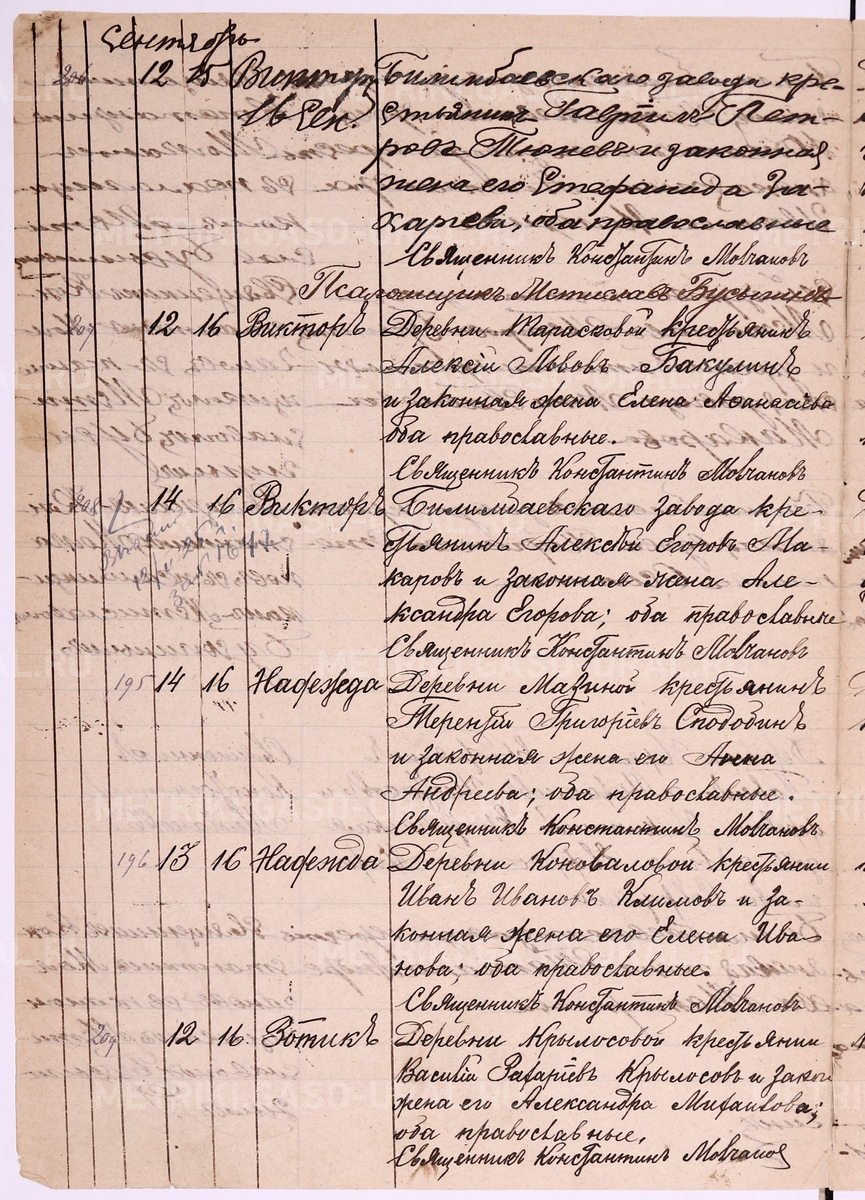 Сентябрь
206 12 15 Викторъ Билимбаевскаго завода кре-
16 Сен. стьянинъ Гавріилъ Пет-
ровъ Тюневъ и законная
жена его Стефанида За-
харіева; оба православные
Священникъ Константинъ Молчановъ
Псаломщикъ Мстиславъ
207 12 16 Викторъ Деревни Тарасковой крестьянинъ
Алексій Львовъ Бакулинъ
и законная жена Елена Аѳанасіева
оба православные.
Священникъ Константинъ Молчановъ
208 14 16 Викторъ Билимбаевскаго завода кре-
стьянинъ Алексѣй Егоровъ Ма-
каровъ и законная жена Але-
ксандра Егорова; оба православные
Священникъ Константинъ Молчановъ
195 14 16 Надежда Деревни Мазиной крестьянинъ
Терентій Григоріевъ Сподобинъ
и законная жена его Анна
Андреева; оба православные.
Священникъ Константинъ Молчановъ
196 13 16 Надежда Деревни Коноваловой крестьянин
Иванъ Ивановъ Климовъ и за-
конная жена его Елена Ива
нова; оба православные.
Священникъ Константинъ Молчановъ
209 12 16 Зотикъ Деревни Крылосовой крестьянин
Василій Захаріевъ Крылосовъ и закон
жена его Александра Михаилова;
оба православные,
Священникъ Константинъ Молчанов